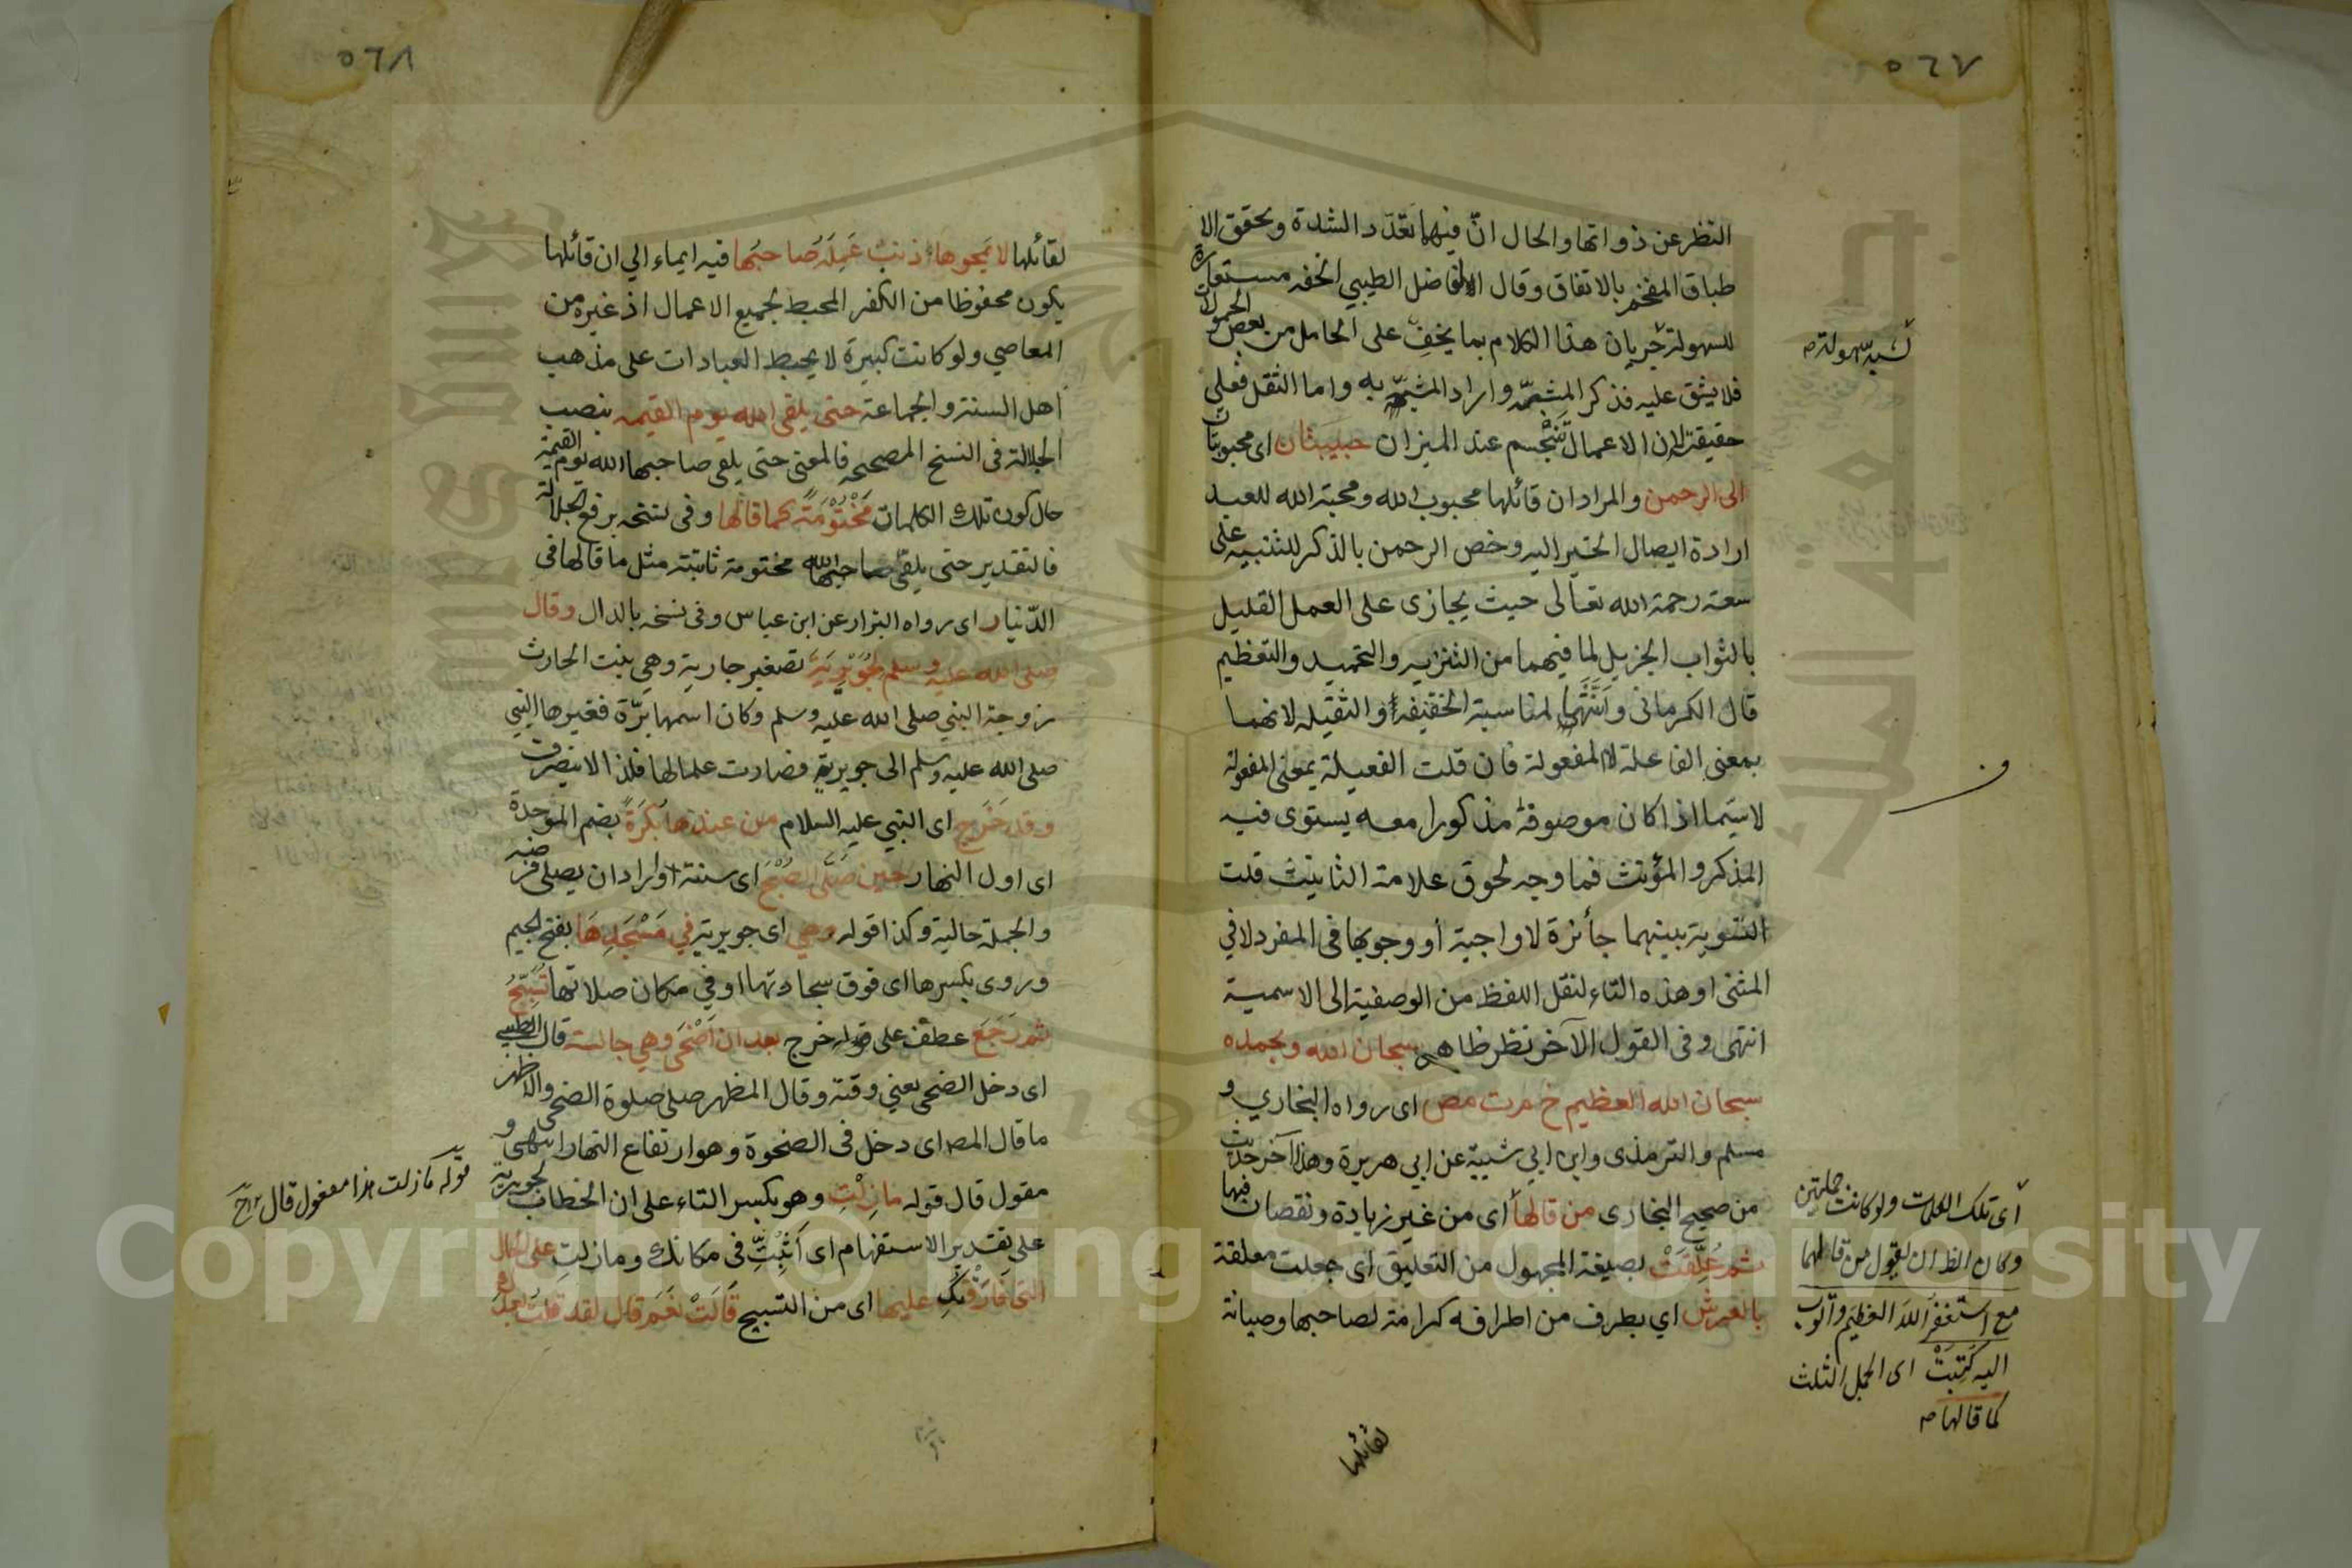 ٥٦٧
النظر عن ذواتها والحال انّ فيهما تعدّد الشدة وتحقق الا
طباق المفخم بالاتفاق وقال الفاضل الطيبي الخفه مستعارة
للسهولة جريان هذا الكلام بما يخف على الحامل من بعض الحمولات
فلا يثق عليه فذكر المشبّه واراد المشبّه به واما الثقل فعلى
حقيقته لان الاعمال تتجسم عند الميزان حبيبتان اى محبوبتان
الى الرحمن والمراد ان قائلها محبوب الله ومحبة الله للعبد
ارادة ايصال الخير اليه وخص الرحمن بالذكر للتنبيه على
سعة رحمة الله تعالى حيث يجازى على العمل القليل
بالثواب الجزيل لما فيهما من التنزيه والتحميد والتعظيم
قال الكرمانى وانثهما لمناسبة الخفيفة والثقيله لانهما
بمعنى الفاعلة لا المفعولة فان قلت الفعيلة بمعنى المفعولة
لاسيّما اذا كان موصوفه مذكورا معه يستوى فيه
المذكر والمؤنث فما وجه لحوق علامة التانيث قلت
التسوية بينهما جائزة لا واجبة أو وجوبها فى المفرد لا في
المثنى او هذه التاء لنقل اللفظ من الوصفية الى الاسمية
انتهى وفى القول الآخر نظر ظاهر سبحان الله وبحمده
سبحان الله العظيم خ م ت مص اى رواه البخاري و
مسلم والترمذى وابن ابي شيبة عن ابي هريرة وهذا آخر حديث
من صحيح البخارى من قالها أى من غير زيادة ونقصان فيها
ثم عُلِّقَتْ بصيغة المجهول من التعليق اى جعلت معلقة
بالعرش اي بطرف من اطرافه كرامة لصاحبها وصيانة
لقائلها
لشبه سهولة ص
أى تلك الكلمات ولو كانت جملتين
وكان الظ ان يقول من قالهما
مع استغفر الله العظيم واتوب
اليه كُتِبَتْ اى الجمل الثلث
كما قالها ص
٥٦٨
لقائلها لا يمحوها ذنب عَمِلَهُ صاحبُها فيه ايماء الي ان قائلها
يكون محفوظا من الكفر المحبط لجميع الاعمال اذ غيره من
المعاصي ولو كانت كبيرة لا يحبط العبادات على مذهب
اهل السنة والجماعة حتى يلقى الله يوم القيمه بنصب
الجلالة فى النسخ المصححه فالمعنى حتى يلقى صاحبها الله يوم القيمة
حال كون تلك الكلمات مَخْتُوْمَةً كما قالها وفى نسخه برفع الجلالة
فالتقدير حتى يلقى صاحبها الله مختومة ثابتة مثل ما قالها فى
الدّنيا ر اى رواه البزار عن ابن عباس وفى نسخه بالدال وقال
صلى الله عليه وسلم لجُوَيْرِيَةَ تصغير جارية وهي بنت الحارث
زوجة النبي صلى الله عليه وسلم وكان اسمها برّة فغيرها النبي
صلى الله عليه وسلم الى جويرية فصارت علما لها فلذا لا ينصرف
وقد خَرَج اى النبي عليه السلام من عندها بُكرَةً بضم الموحدة
اى اول النهار حين صَلَّى الصُبْحَ اى سنته او اراد ان يصلى فرضه
والجملة حالية وكذا قوله وهي اى جويرية في مَسْجَدِهَا بفتح الجيم
وروى بكسرها اى فوق سجادتها او في مكان صلاتها تُسَبِّحُ
ثم رَجَعَ عطف على قوله خرج بعد ان اَضْحَى وهي جالسة قال الطيبي
اى دخل الضحى يعني وقته وقال المظهر صلى صلوة الضحى والاظهر
ما قال المص اى دخل فى الضحوة وهو ارتفاع النهار انتهى و
مقول قال قوله مازِلْتِ وهو بكسر التاء على ان الخطاب لجويرية
على تقدير الاستفهام اى اَثَبَتِّ فى مكانك ومازلتِ على الحال
التى فارَقْتكِ عليها اى من التسبيح قَالَتْ نَعَم قال لقد قلت بعدك
قوله مازلت هذا مفعول قال
Copyright © King Saud University